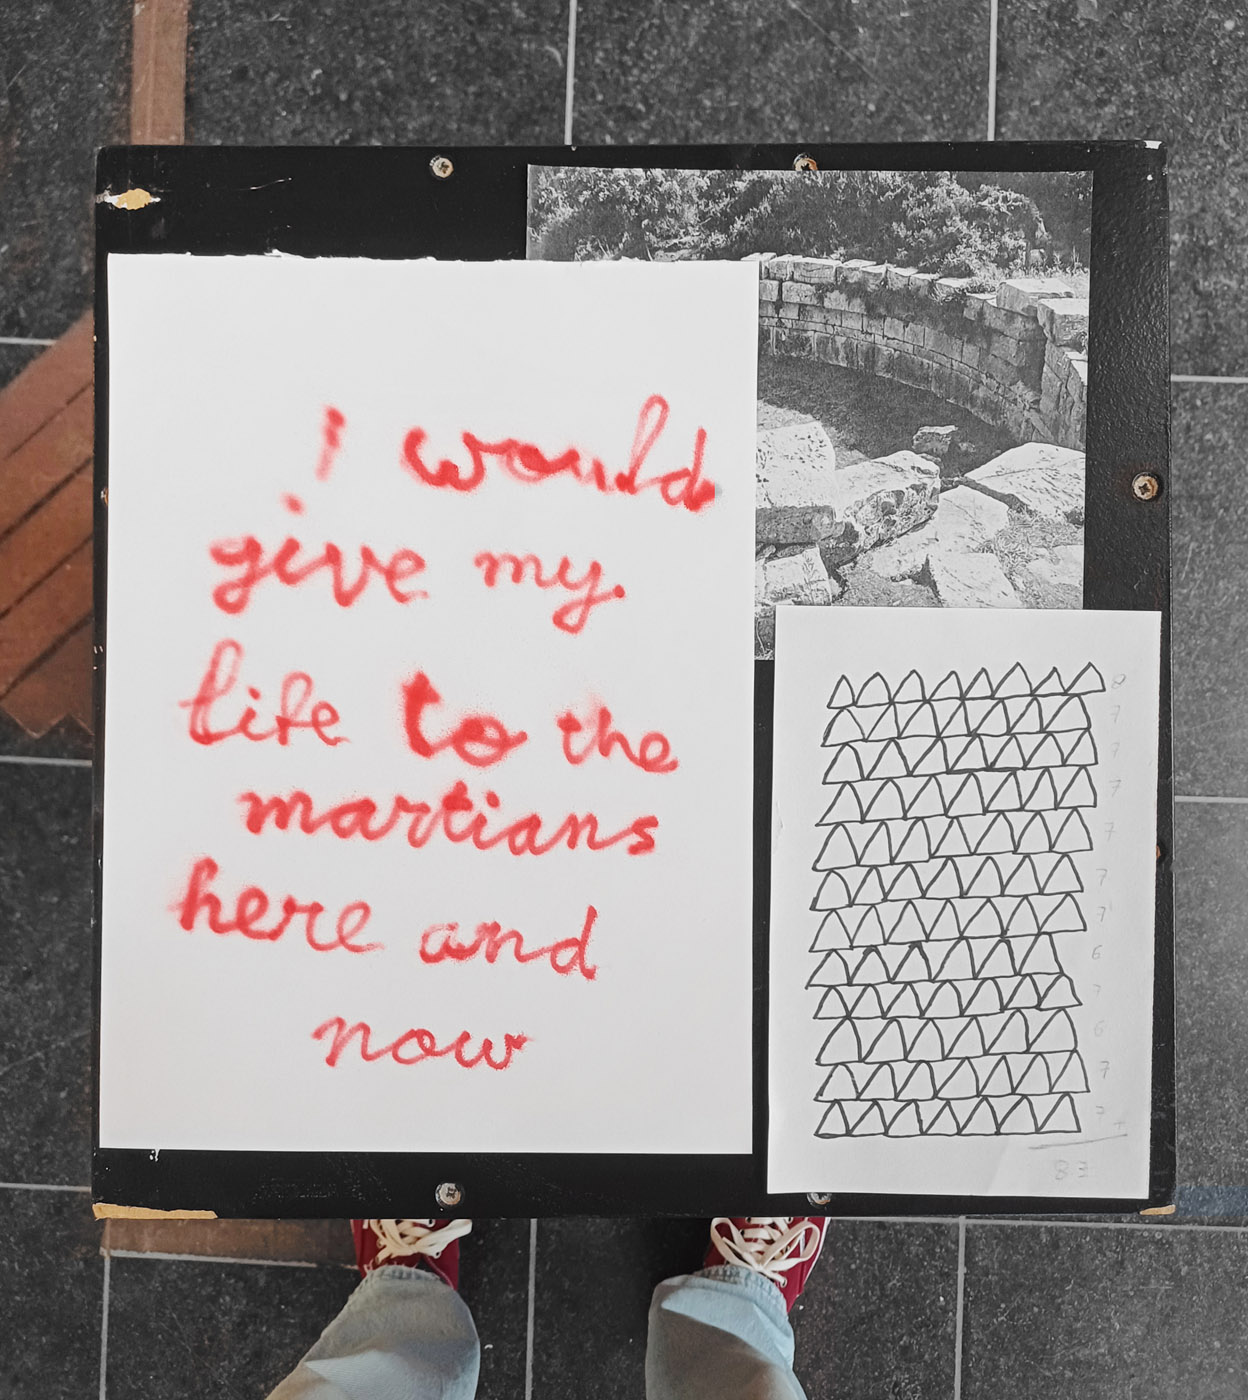 i would
give my
life to the
martians
here and
now
8
7
7
7
7
7
7
6
7
6
7
7
+
83